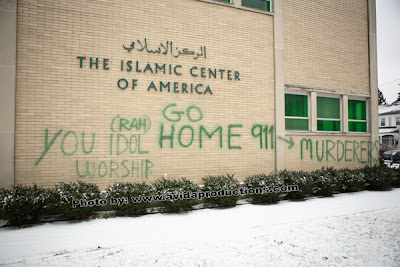 المركز الإسلامي
THE ISLAMIC CENTER
OF AMERICA
GO
(RAH)
YOU IDOL HOME 911 → MURDERERS
WORSHIP
Photo by: www.avidaproductions.com